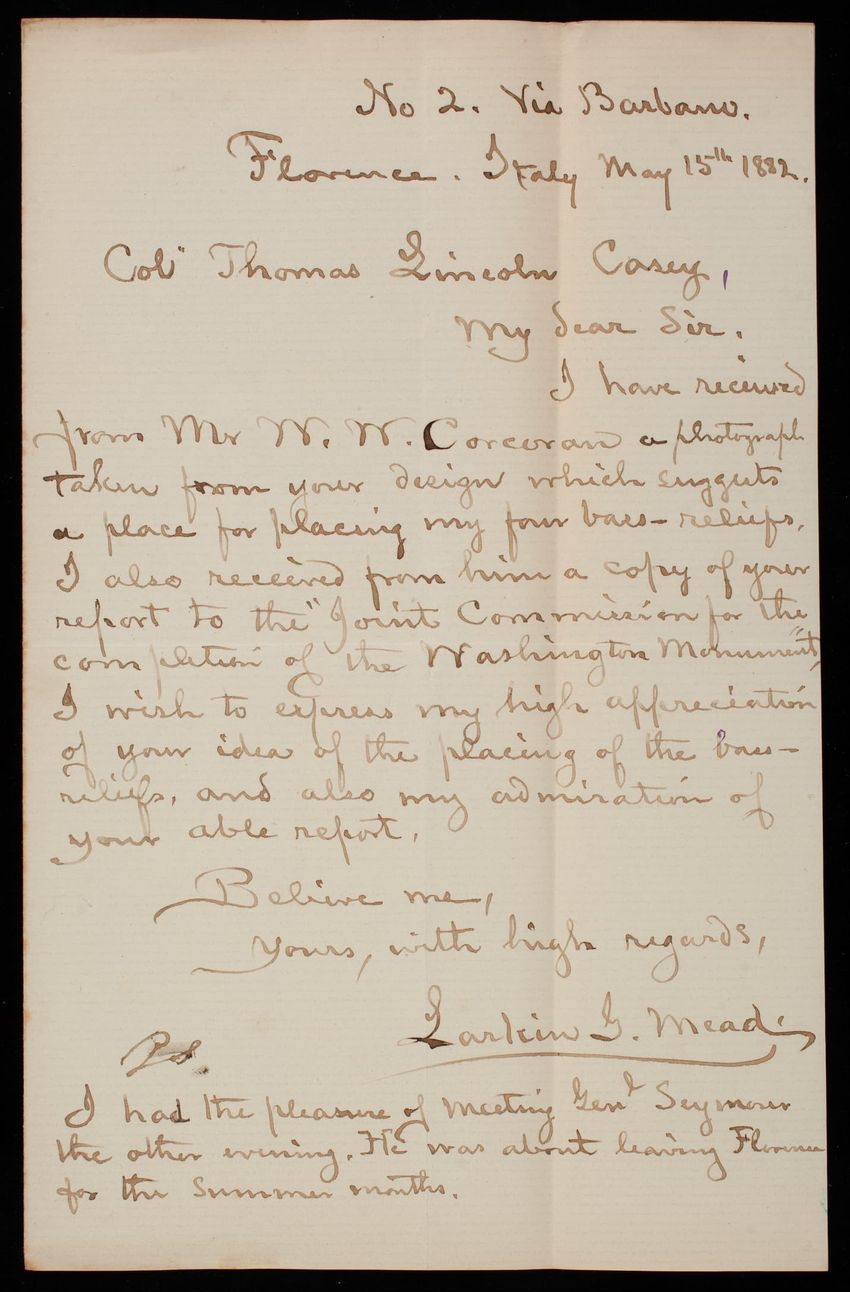 No 2. Via Barbano.
Florence. Italy May 15th 1882.
Col" Thomas Lincoln Casey,
My dear Sir.
I have received
from Mr W. W. Corcoran a photograph
taken from your design which suggests
a place for placing my four bass-reliefs.
I also received from him a copy of your
report to the "Joint Commission for the
completion of the Washington Monument",
I wish to express my high appreciation
of your idea of the placing of the bass-
reliefs, and also my admiration of
your able report.
Believe me,
Yours, with high regards,
Larkin G. Mead.
P.S.
I had the pleasure of meeting Genl Seymour
the other evening. He was about leaving Florence
for the summer months.